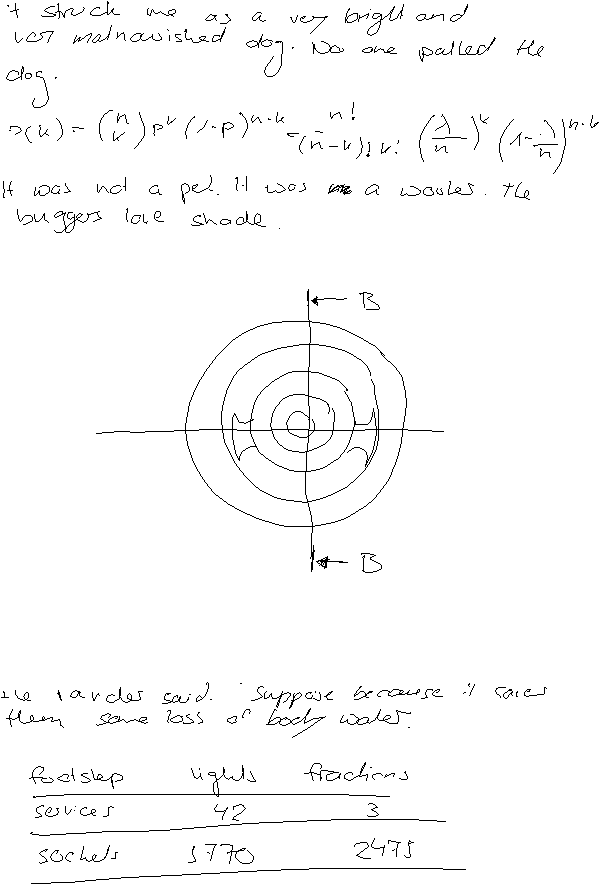 It struck me as a very bright and
very malnourished dog. No one patted the
dog.
P(k) = (n k) p^k (1-p)^{n-k} = n! / (n-k)! k! (λ/n)^k (1-λ/n)^{n-k}
It was not a pet. It was a worker. The
buggers love shade.
B
B
The said. Suppose because it saves
them some loss of body water.
footstep lights fractions
services 42 3
sockets 5770 2475